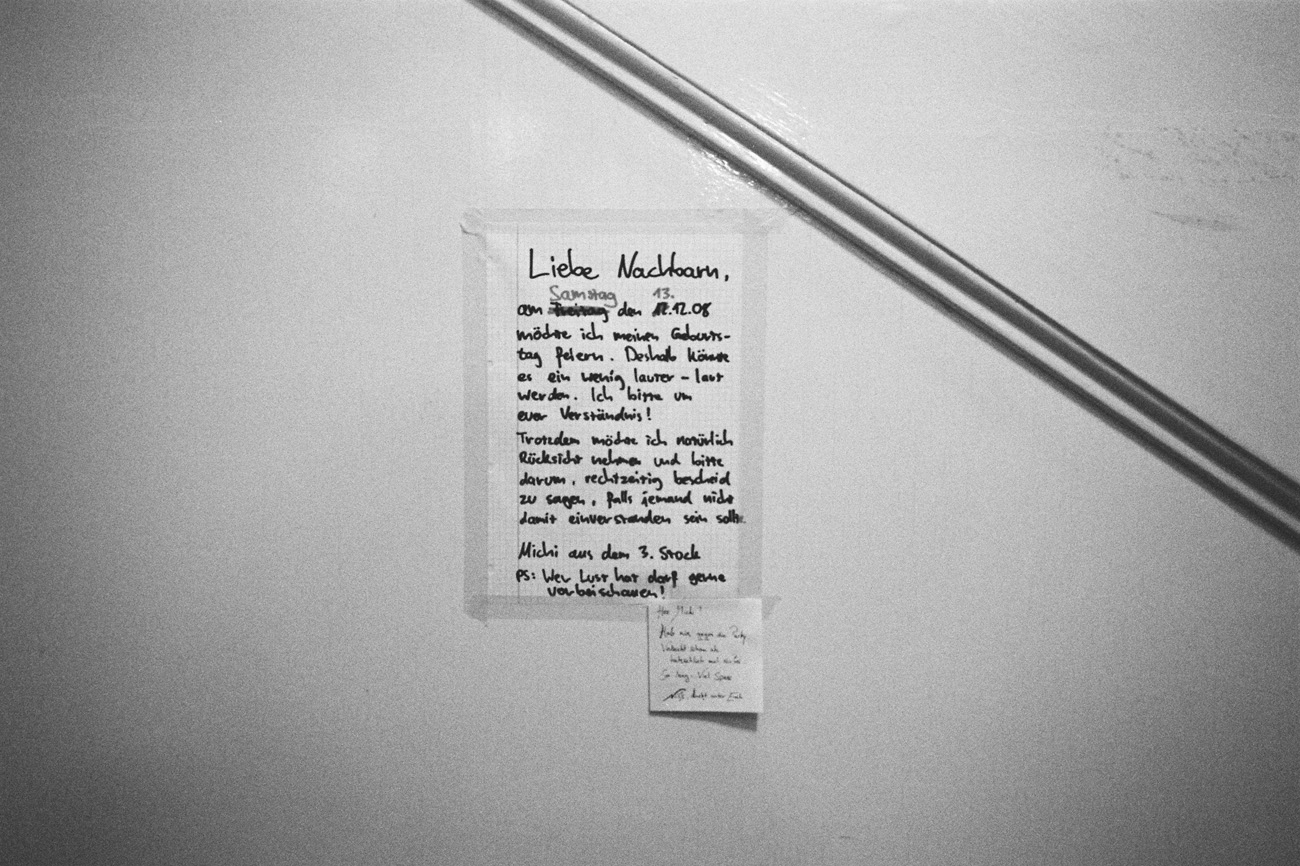 Liebe Nachbarn,
Samstag 13.
am Freitag den 12.12.08
möchte ich meinen Geburts-
tag feiern. Deshalb könnte
es ein wenig lauter - laut
werden. Ich bitte um
euer Verständnis!
Trotzdem möchte ich natürlich
Rücksicht nehmen und bitte
darum, rechtzeitig bescheid
zu sagen, falls jemand nicht
damit einverstanden sein sollte.
Michi aus dem 3. Stock
PS: Wer Lust hat darf gerne
vorbeischauen!
Hey Michi!
Hab nix gegen die Party
Vielleicht schau ich
tatsächlich mal
So long.. Viel Spass
direkt unter Euch